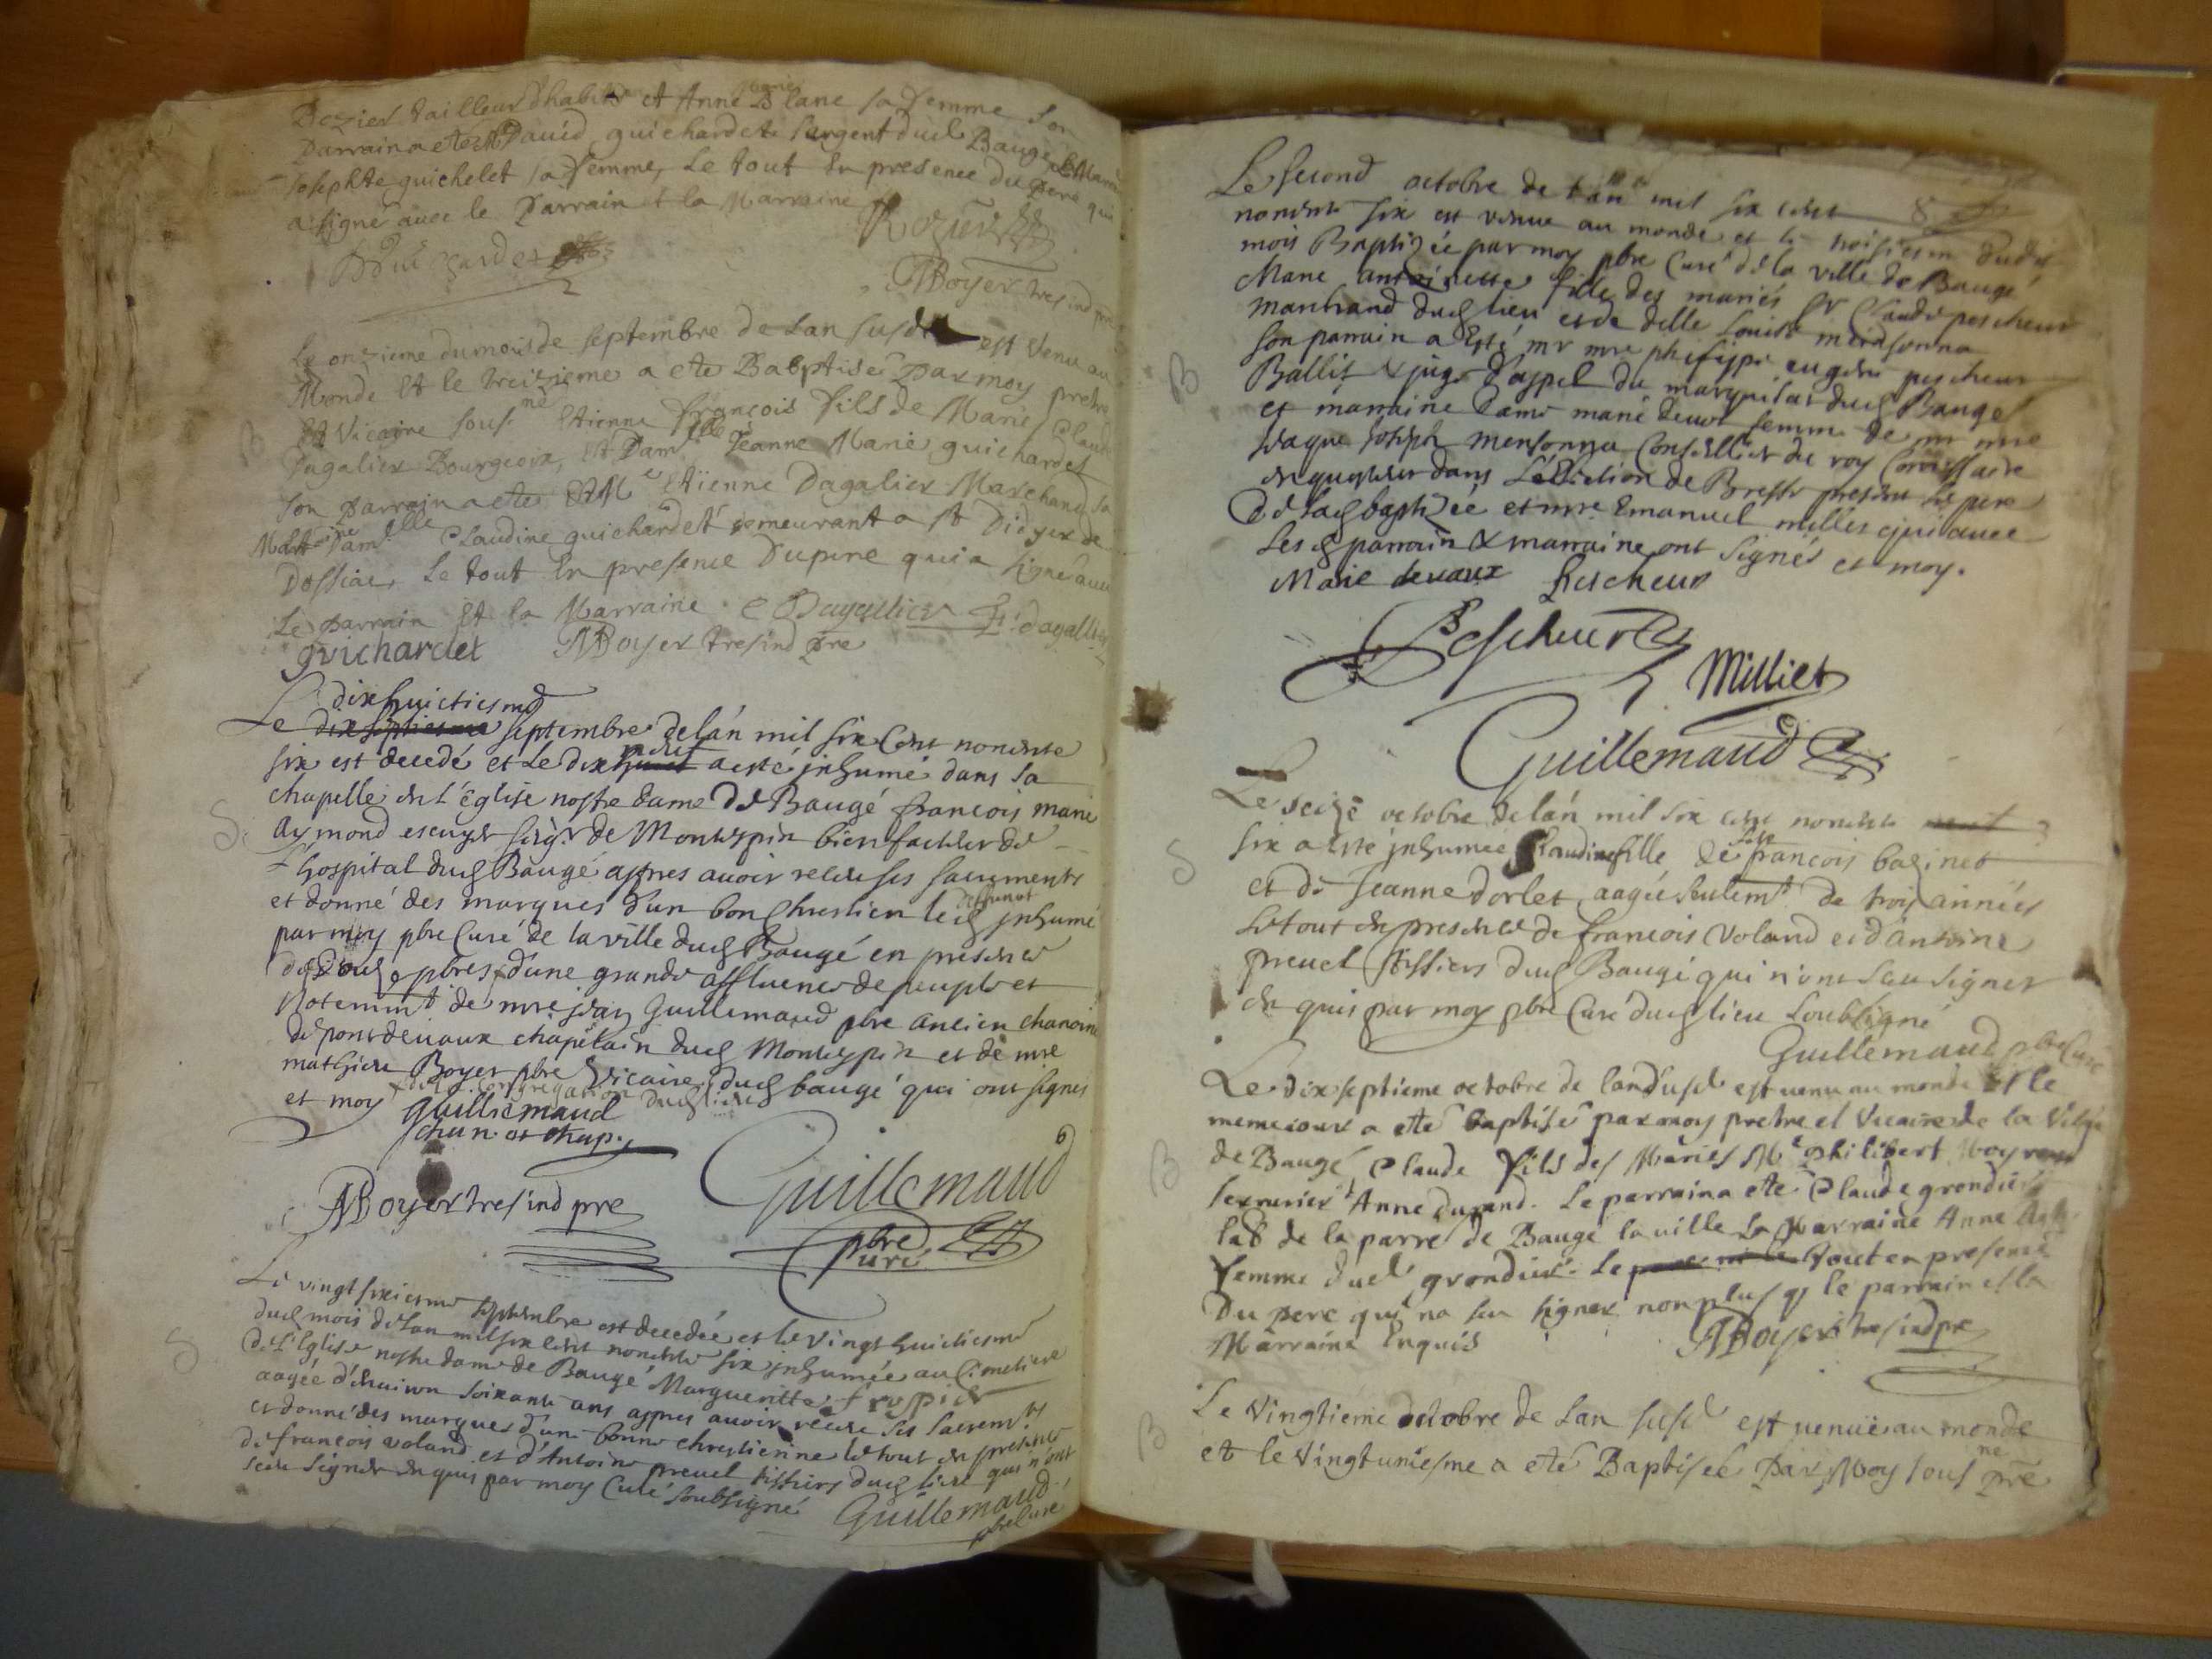 Rozier tailleur d'habits et Anne Marie Blanc sa femme son
Parrain a ete Mr David guichardet sergent dud Baugé la Marraine
Josephte guichelet sa femme, Le tout En presence du pere qui
a signé avec le Parrain et la Marraine
Rozier
Boyer
Le onzieme du mois de septembre de Lan susd est Venu au
Monde Et le treizieme a ete Babptisé par moy pretre
Et Vicaire sous.né Etienne François Fils de Marie Claude
Dagalier Bourgeois, Et Dam.lle Jeanne Marie guichardet
son parrain a ete Et Me Etienne Dagalier Marchand, sa
Marraine Damlle Claudine guichardet demeurant a St Didyer de
Dossiac, Le tout En presence Dupere qui a signé avec
Le parrain Et la Marraine. C Dagallier E. dagallier
guichardet MBoyer tres ind pre
dixhuictiesme
Le dix septiesme septembre de lán mil six cent nonente
six est decedé et Le dix neuf huict a esté jnhumé dans sa
chapelle en L'église nostre dame De Baugé françois marie
Aymond escuyer seigr de Montespin bienfaicteur de
L'hospital dud Baugé appres avoir receu ses sacrements
et donné des marques d'un bon Chrestien led deffunct jnhumé
par moy pbre Curé de la ville dud Baugé en presence
de pbres d'une grande affluence de peuple et
Notemmt de mre jean Guillemaud pbre ancien chanoine
de pontdevaux chapelain dud Montespin et de mre
mathieu Boyer pbre Vicaire dud baugé qui ont signes
et moy congregation dud lieu
guilliemaud
chan. et chap.
MBoyer tres ind pre
Guillemaud
pbre
Curé
Le vingt sixiesme septembre est decedée et le vingt huictiesme
dud mois de lan mil six cent nonente six jnhumée au Cimetiere
de L'Eglise nostre dame de Baugé Margueritte fropier
aagée d'environ soixante ans appres avoir receu ses sacremts
et donné des marques d'une bonne chrestienne le tout en presence
de françois voland et d'Antoine prevel tissiers dud lieu qui n'ont
sceu signer enquis par moy Curé soubsigné
Guillemaud
pbre Curé
Le second octobre de lan mil six cent
nonente six est venue au monde et le troisiesme dudit
mois Baptizée par moy pbre Curé de la ville de Baugé
Marie antoinette fille des mariés Sr Claude pescheur
marchand dud lieu et de delle Louise
son parrain a Esté mr mre philippe eugene pescheur
Ballif & juge d'appel du marquisat dud Baugé
et marraine dame marie devaux femme de mr mre
jaque joseph Conseiller du roy Comissaire
enquesteur dans L'Election de Bresse presents le pere
De lad baptizée et mre Emanuel millies qui avec
Les d parrain & marraine ont signés et moy.
Marie devaux Pescheur
Pescheur
Milliet
Guillemaud
Le seize octobre de lán mil six cent nonente
six a esté jnhumée Claudine fille de feu françois bazinet
et de Jeanne dorlet, aagée seulemt de trois années
Le tout en presence de francois Voland et d'Antoine
prevel tissiers dud Baugé qui n'ont sceu signer
enquis par moy pbre Curé dud lieu Soubsigné
Guillemaud pbre Curé
Le dix septieme octobre de land susd est venu au monde Et le
meme jour a ete baptisé par moy pretre et Vicaire de la Ville
de Baugé Claude Fils des Mariés Me philibert
serrurier et Anne durand. Le parrain a ete Claude grondier
lab de la parre de Baugé la ville La Marraine Anne
femme dud grondier. Le tout en presence
Du pere qui na seu signer non plus q le parrain et la
Marraine Enquis
MBoyer tres ind pre
Le Vingtieme octobre de Lan susd est venüe au monde
et le Vingtuniesme a eté Baptisée Par Moy sous né pre